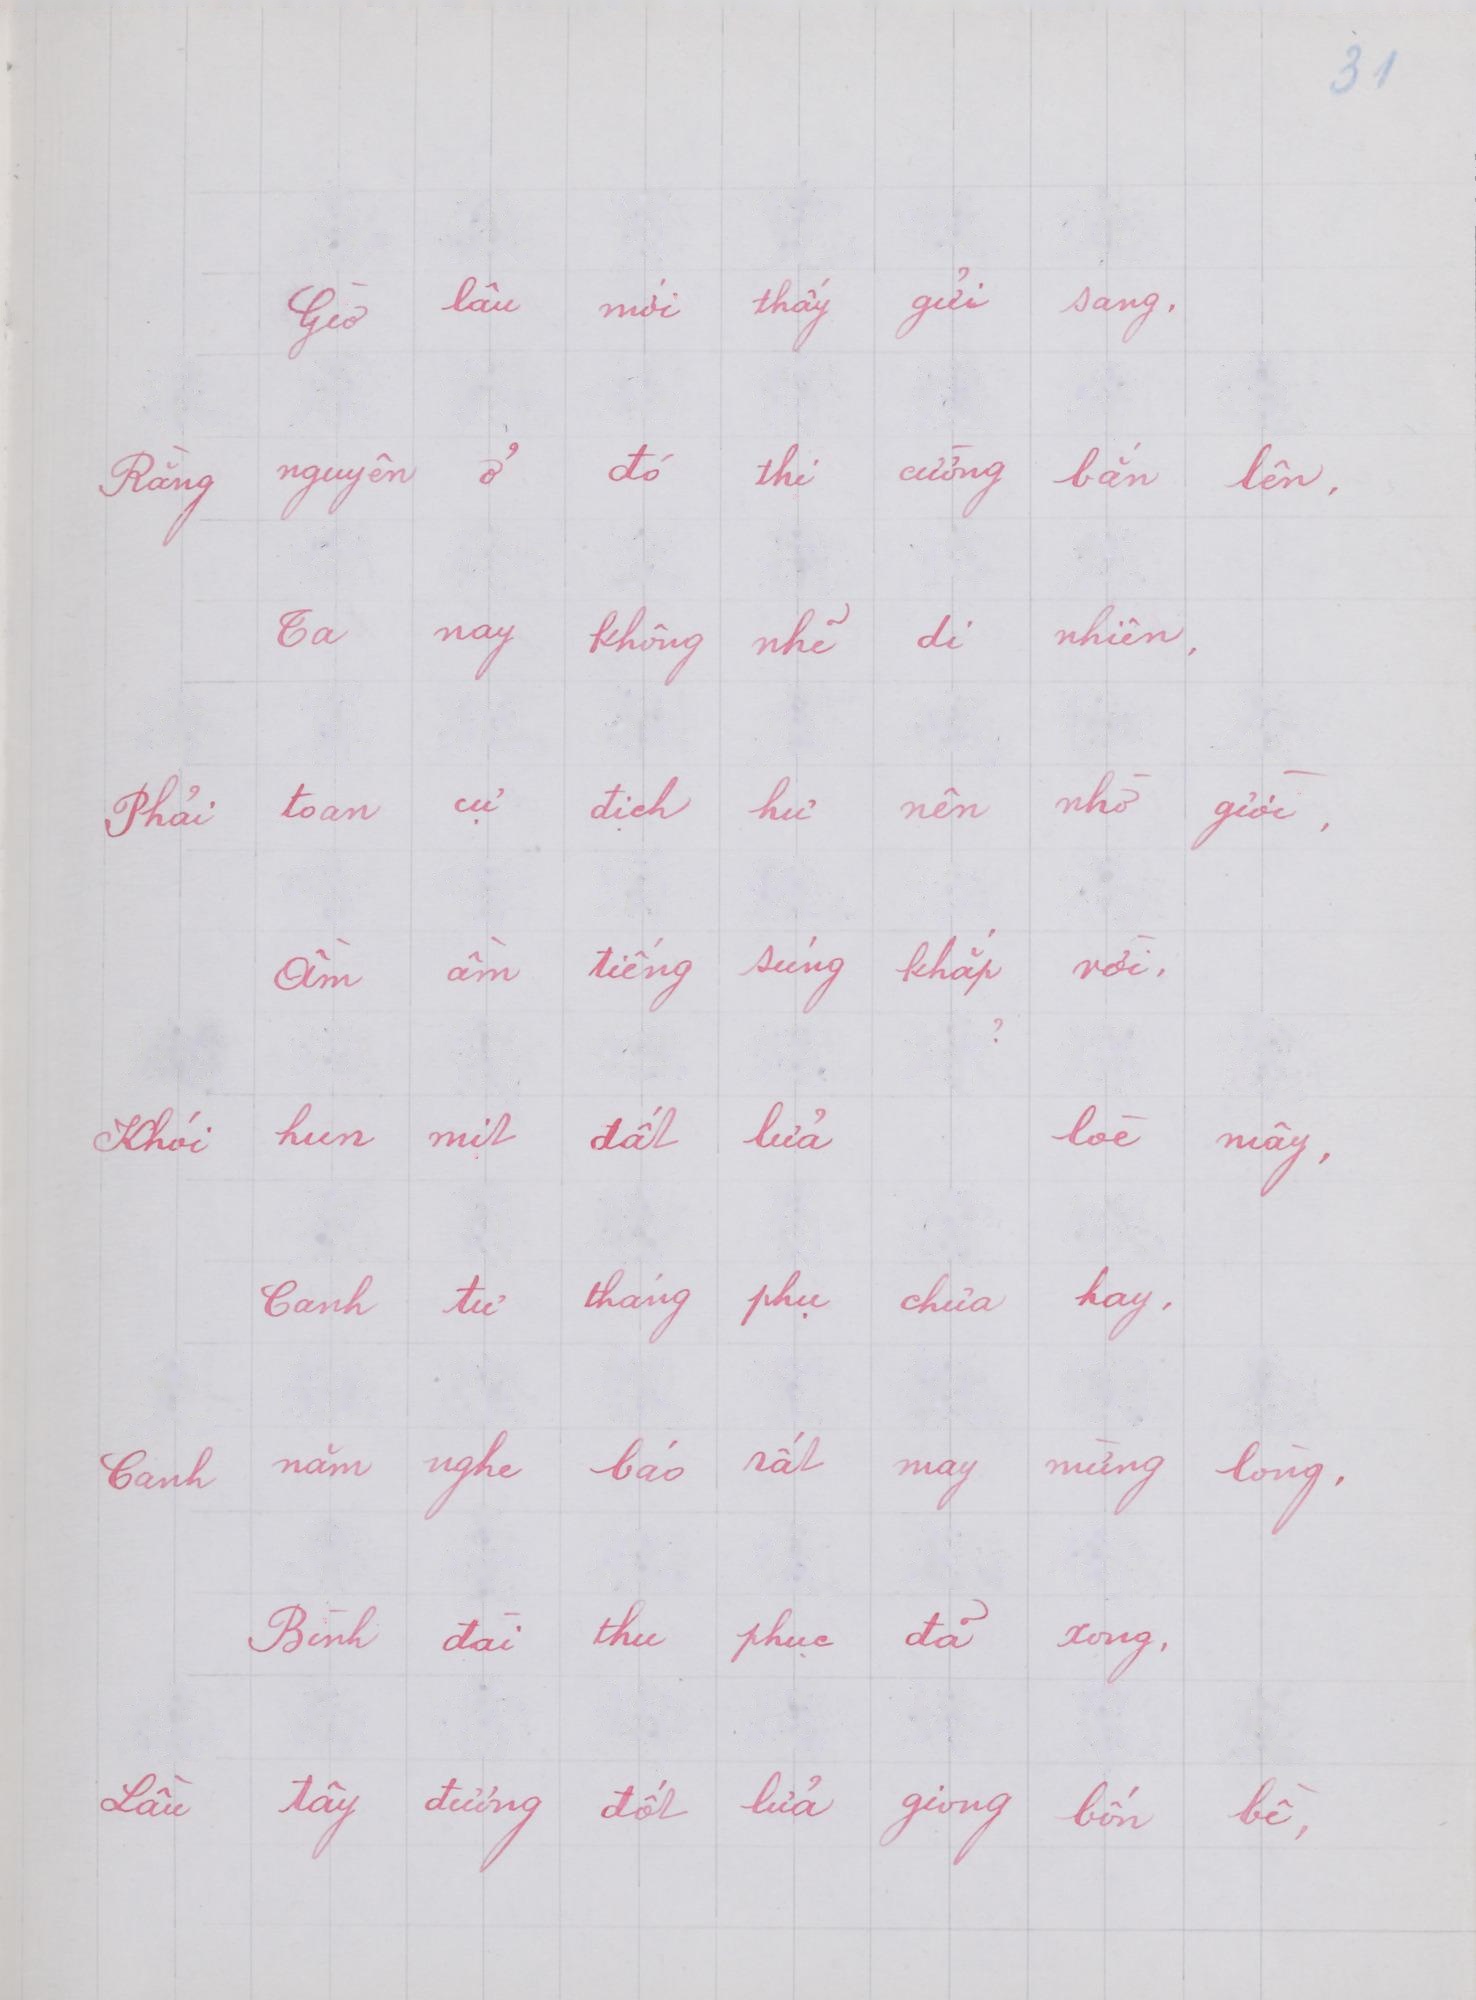 31
Giờ lâu mới thấy gửi sang.
Rằng nguyên ở đó thì cũng bắn lên,
Ta nay không nhẽ dĩ nhiên,
Phải toan cự địch hư nên nhờ giời,
Ầm ầm tiếng súng khắp vời.
?
Khói hun mịt đất lửa loè mây,
Canh tư tháng phụ chưa hay.
Canh năm nghe báo rất may mừng lòng.
Bình đài thu phục đã xong.
Lầu tây đương đốt lửa giong bốn bề,